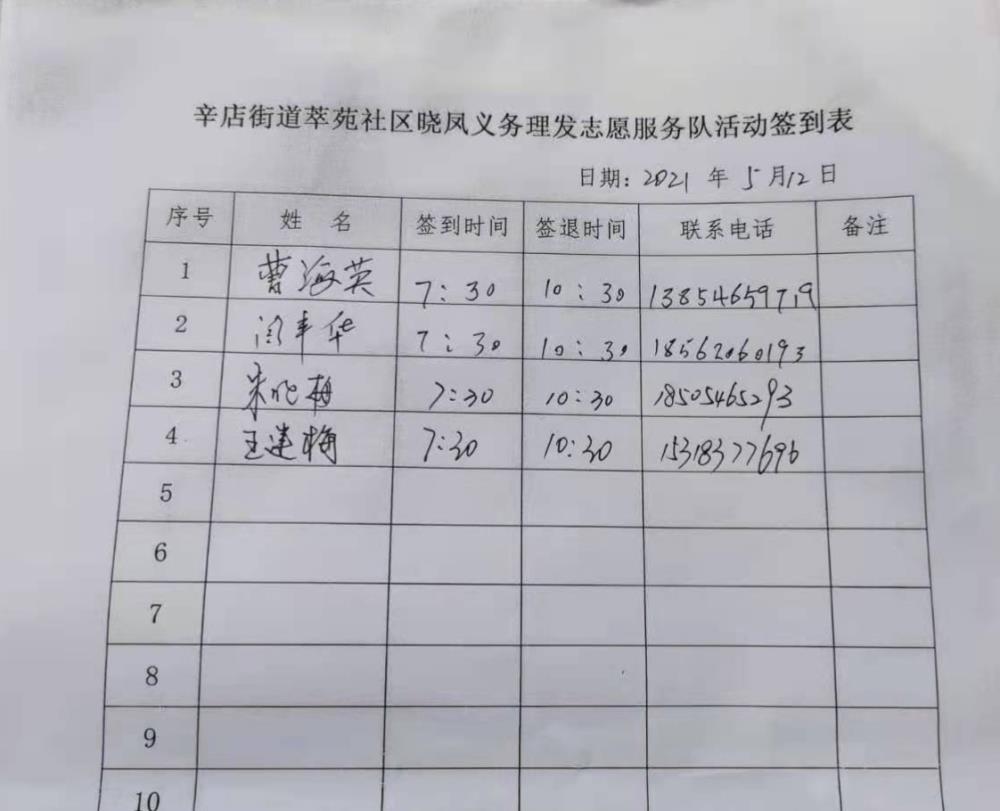 辛店街道萃苑社区晓凤义务理发志愿服务队活动签到表
日期：2021 年 5 月 12 日
序号 姓 名 签到时间 签退时间 联系电话 备注
1 曹海英 7:30 10:30 13854659719
2 闫丰华 7:30 10:30 18562060193
3 宋晓梅 7:30 10:30 18505465293
4 王建梅 7:30 10:30 15318377696
5
6
7
8
9
10